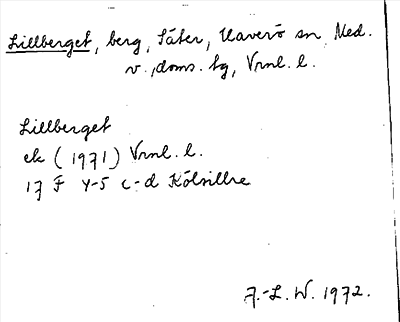 Lillberget, berg, Säter, Haverö sn, Med.
v. doms. tg, Vrnl. l.
Lillberget
ek (1971) Vrnl. l.
17 F 4-5 c-d Kölsillre
J.-L. W. 1972.